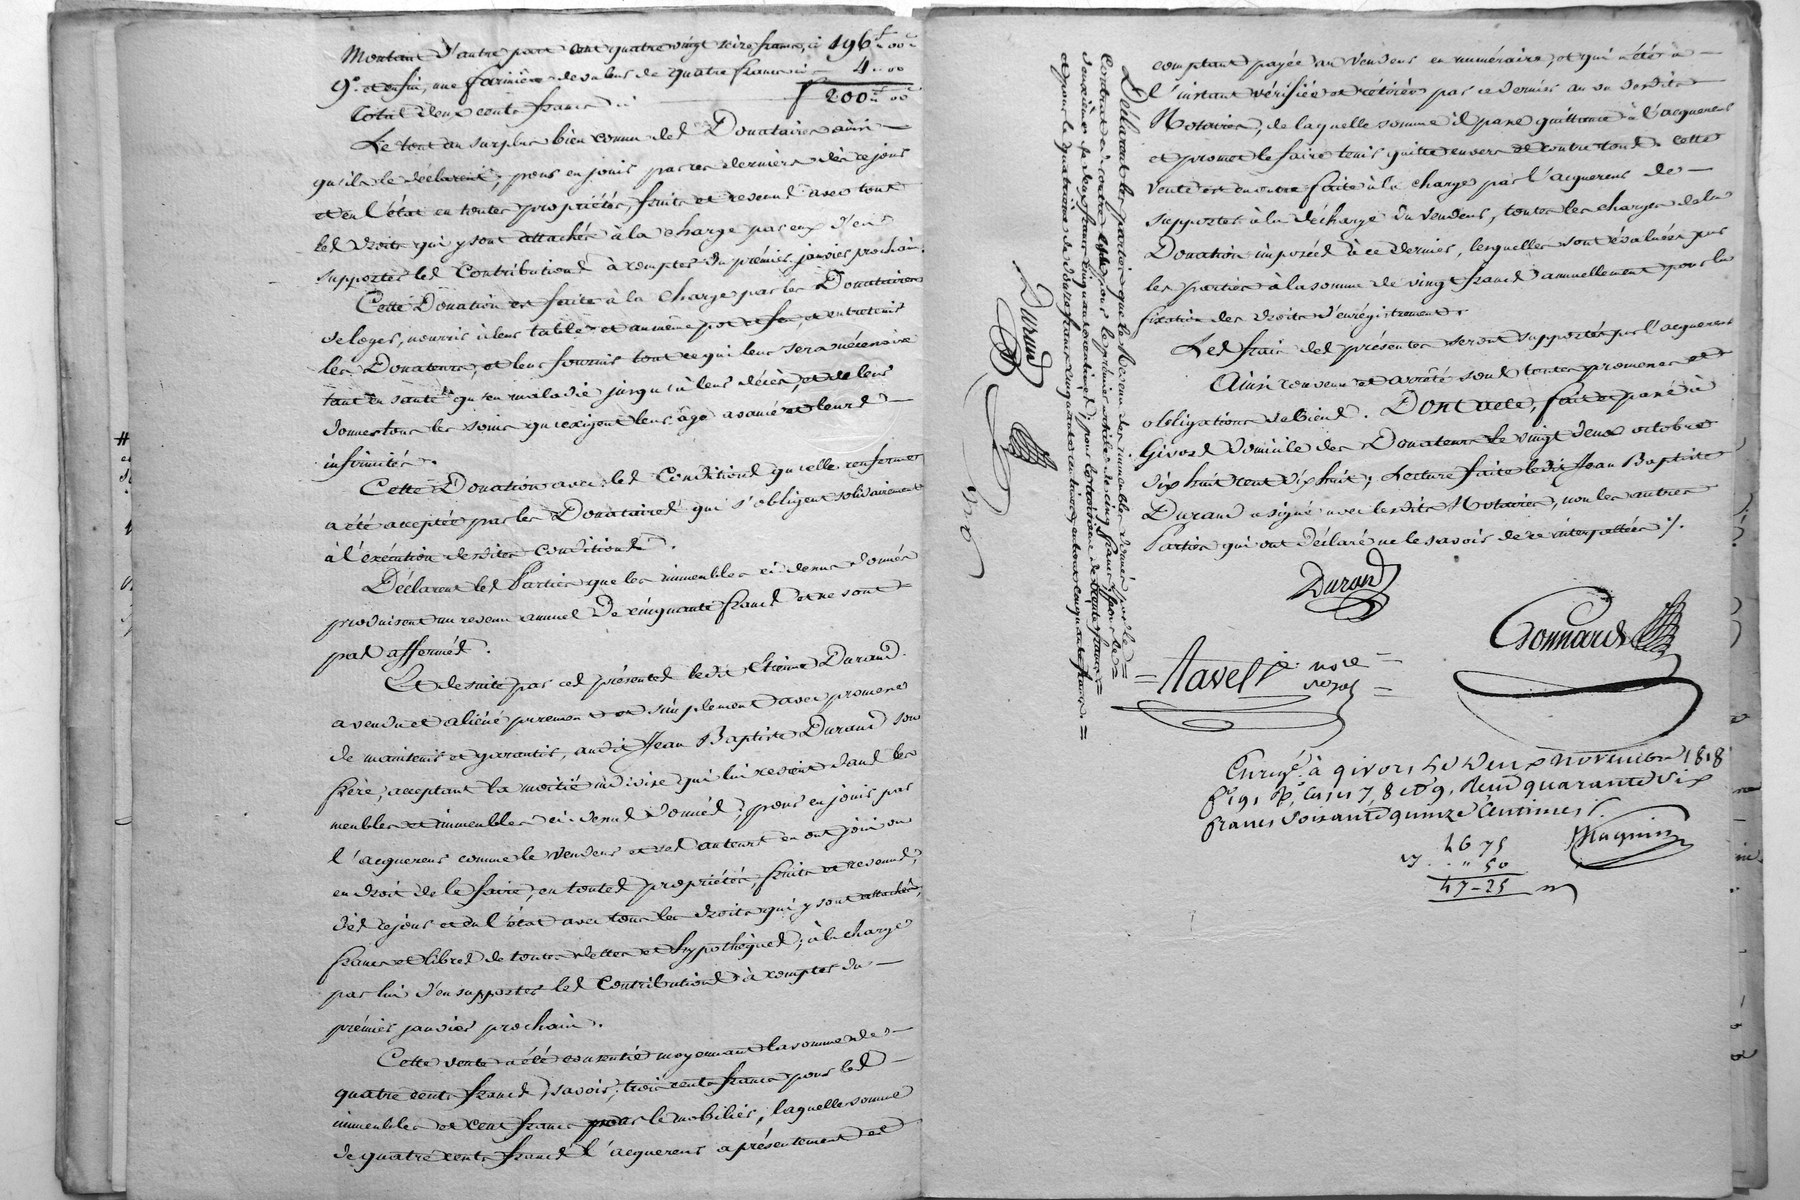 Montant d'autre part cent quatre vingt seize francs, ci 196f 00c
9° et enfin, une farinière de valeur de quatre francs ci 4 .. 00
Total deux cents francs ci f 200f 00c
Le tout au surplus bien connu des Donataires ainsi
qu'ils le déclarent; pour en jouir par ces derniers dès ce jour
et en l'état en toutes propriétés, fruits et revenus avec tout
les droits qui y sont attachés à la charge par eux d'en
supporter les Contributions à compter du prémier janvier prochain.
Cette Donation est faite à la charge par les Donataires
de loger, nourrir à leur table et au même pot et feu, et entretenir
les Donateurs, et leur fournir tout ce qui leur sera nécessaire
tant en santé qu'en maladie jusqu'à leur décès, et de leur
donner tous les soins qu'exigent leur âge avancé et leurs
infirmités.
Cette Donation avec les Conditions qu'elle renferme
a été acceptée par les Donataires qui s'obligent solidairement
à l'exécution desdites Conditions.
Déclarent les Parties que les immeubles ci-dessus donnés
produisent un revenu annuel De cinquante francs et ne sont
pas affermés.
Et de suite par ces présentes ledit Etienne Durand
a vendu et aliéné purement et simplement avec promesse
de maintenir et garantir, audit Jean Baptiste Durand son
frère, acceptant la moitié indivise qui lui revient dans les
meubles et immeubles ci-dessus donnés; pour en jouir par
l'acquereur comme le vendeur et ses auteurs en ont joui ou
en droit de le faire, en toutes propriétés, fruits et revenus,
dès ce jour et en l'état avec tous les droits qui y sont attachés,
francs et libres de toutes dettes et hypothèques; à la charge
par lui d'en supporter les Contributions à compter du
prémier janvier prochain.
Cette vente a été consentie moyennant la somme de
quatre cents francs, savoir; trois cents francs pour les
immeubles et cent francs pour le mobilier, laquelle somme
de quatre cents francs l'acquereur a présentement et
comptant payée au vendeur en numéraire, et qui a été à
l'instant vérifiée et retirée par ce dernier au vu desdits
Notaires, de laquelle somme il passe quittance à l'acquereur
et promet le faire tenir quitte envers et contre tous. Cette
vente est en outre faite à la charge par l'acquereur de
supporter à la décharge du vendeur, toutes les charges de la
Donation imposées à ce dernier, lesquelles sont évaluées par
les parties à la somme de vingt francs annuellement pour la
fixation des droits d'enrégistrement.
Les frais des présentes seront supportés par l'acquereur
Ainsi convenu et arrêté sous toutes promesses et
obligations de Biens. Dont acte, fait et passé à
Givors domicile des Donateurs le vingt deux octobre
dix huit cent dix huit; Lecture faite ledit Jean Baptiste
Durand a signé avec lesdits Notaires, non les autres
Parties qui ont déclaré ne le savoir de ce interpellées ./.
Déclarent les parties que le Revenu des immeubles donnés par le
Contrat ci-contre est pour le prémier article de cinq francs, pour le
deuxième de deux francs cinquante centimes, pour le troisième de trente francs
et pour le quatrième de douze francs cinquante centimes, en tout cinquante francs.
Durand
Durand
Gonnard
Tavel Jne nore
royal
Enregé. à givors le deux novembre 1818
fo 191 Ro, Cases 7, 8 et 9, Reçu quarante six
francs soixante quinze Centimes.
46 75
" 50
47-25
Magnin